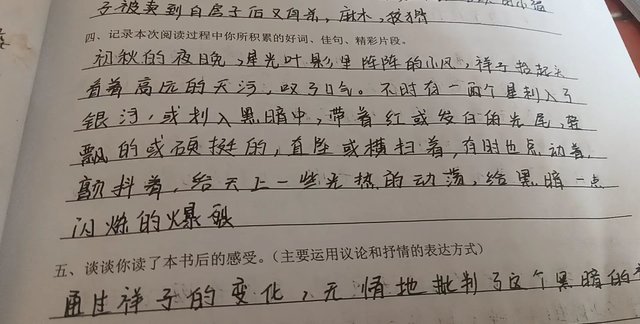 子被卖到白房子后又自杀，麻木、狡猾
四、记录本次阅读过程中你所积累的好词、佳句、精彩片段。
初秋的夜晚，星光叶影里阵阵的小风，祥子抬起头
看着高远的天河，叹了口气。不时有一两个星刺入了
银河，或划入黑暗中，带着红或发白的光尾，轻
飘的或硬挺的，直坠或横扫着，有时也点动着，
颤抖着，给天上一些光热的动荡，给黑暗一点
闪烁的爆裂
五、谈谈你读了本书后的感受。（主要运用议论和抒情的表达方式）
通过祥子的变化，无情地批判了这个黑暗的